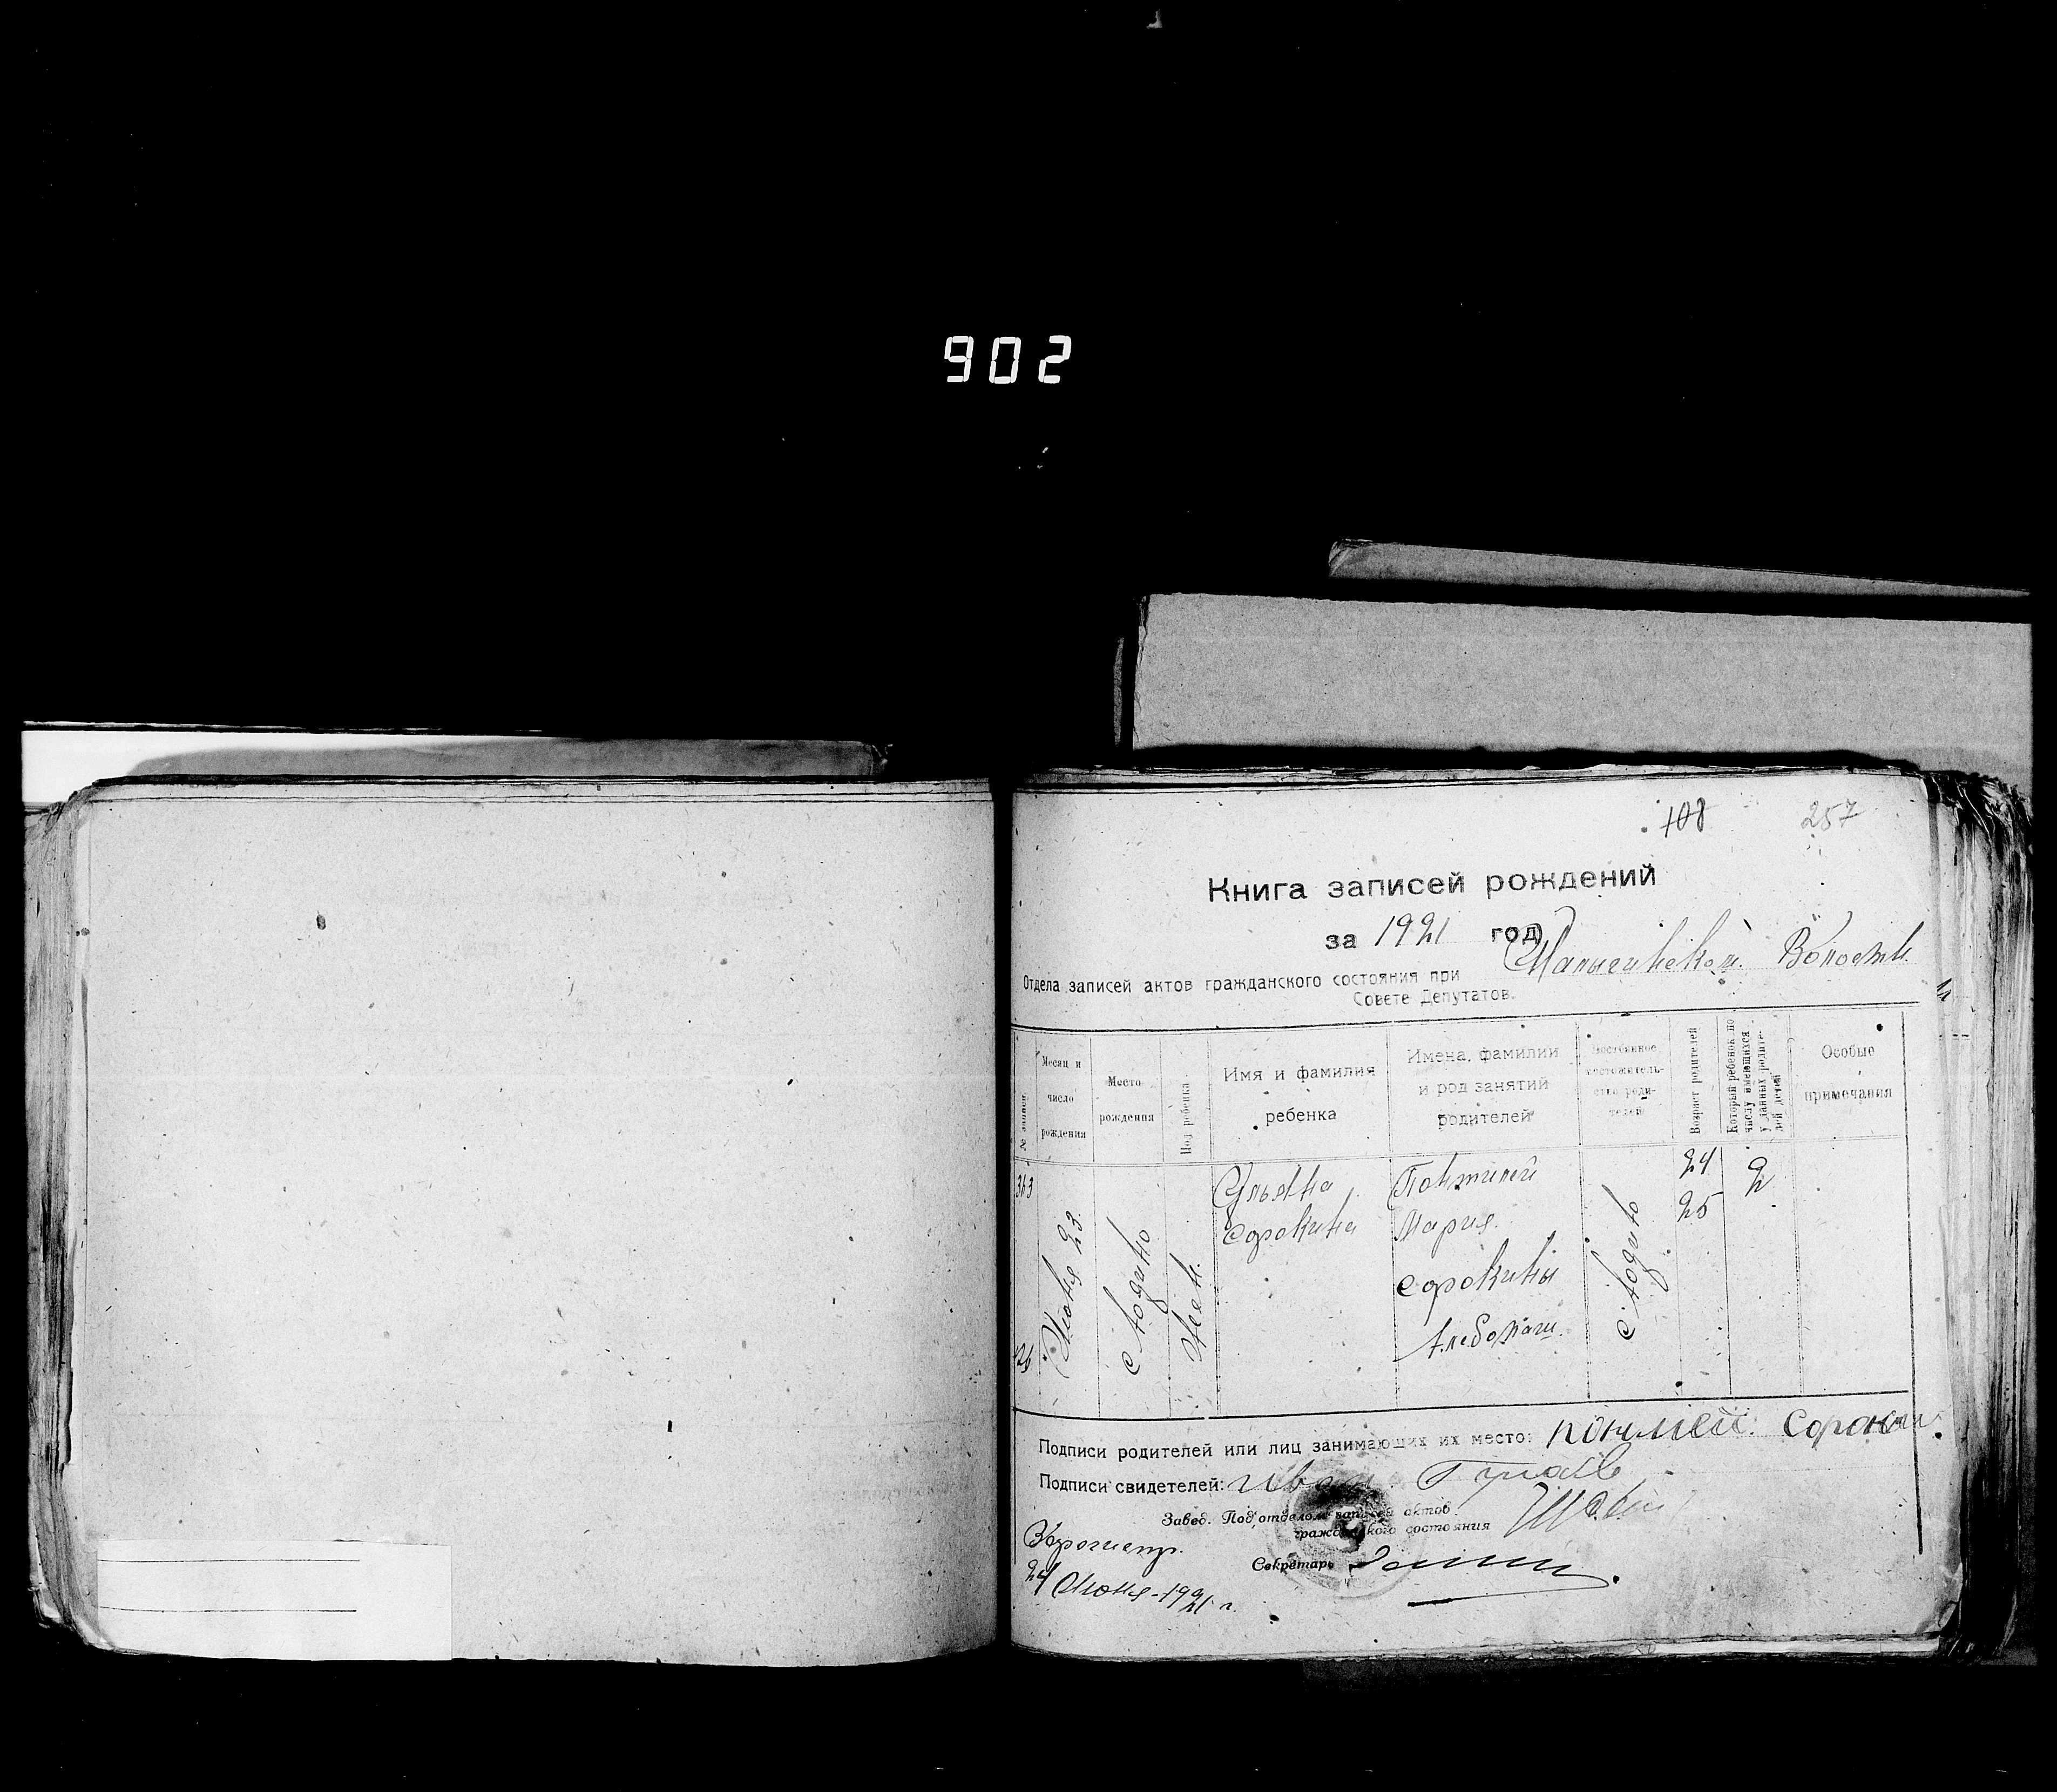 902
108 257
Книга записей рождений
за 1921 год
Малыгинской Волости.
Отдела записей актов гражданского состояния при
Совете Депутатов.
№ записи.
Месяц и число рождения
Место рождения
Пол ребенка.
Имя и фамилия ребенка
Имена, фамилии и род занятий родителей
Постоянное местожительство родителей
Возраст родителей
Который ребенок по числу имеющихся у данных родителей детей
Особые примечания
363
26
Июня 23.
Жен.
Ульяна
Сорокина
Пантилей
Мария
Сорокины
Хлебопаш.
24
25
2
Подписи родителей или лиц занимающих их место:
Подписи свидетелей: Иван
Завед. Под'отделом записей актов
гражданского состояния
Секретарь
Зарегистр.
24 Июня-1921 г.